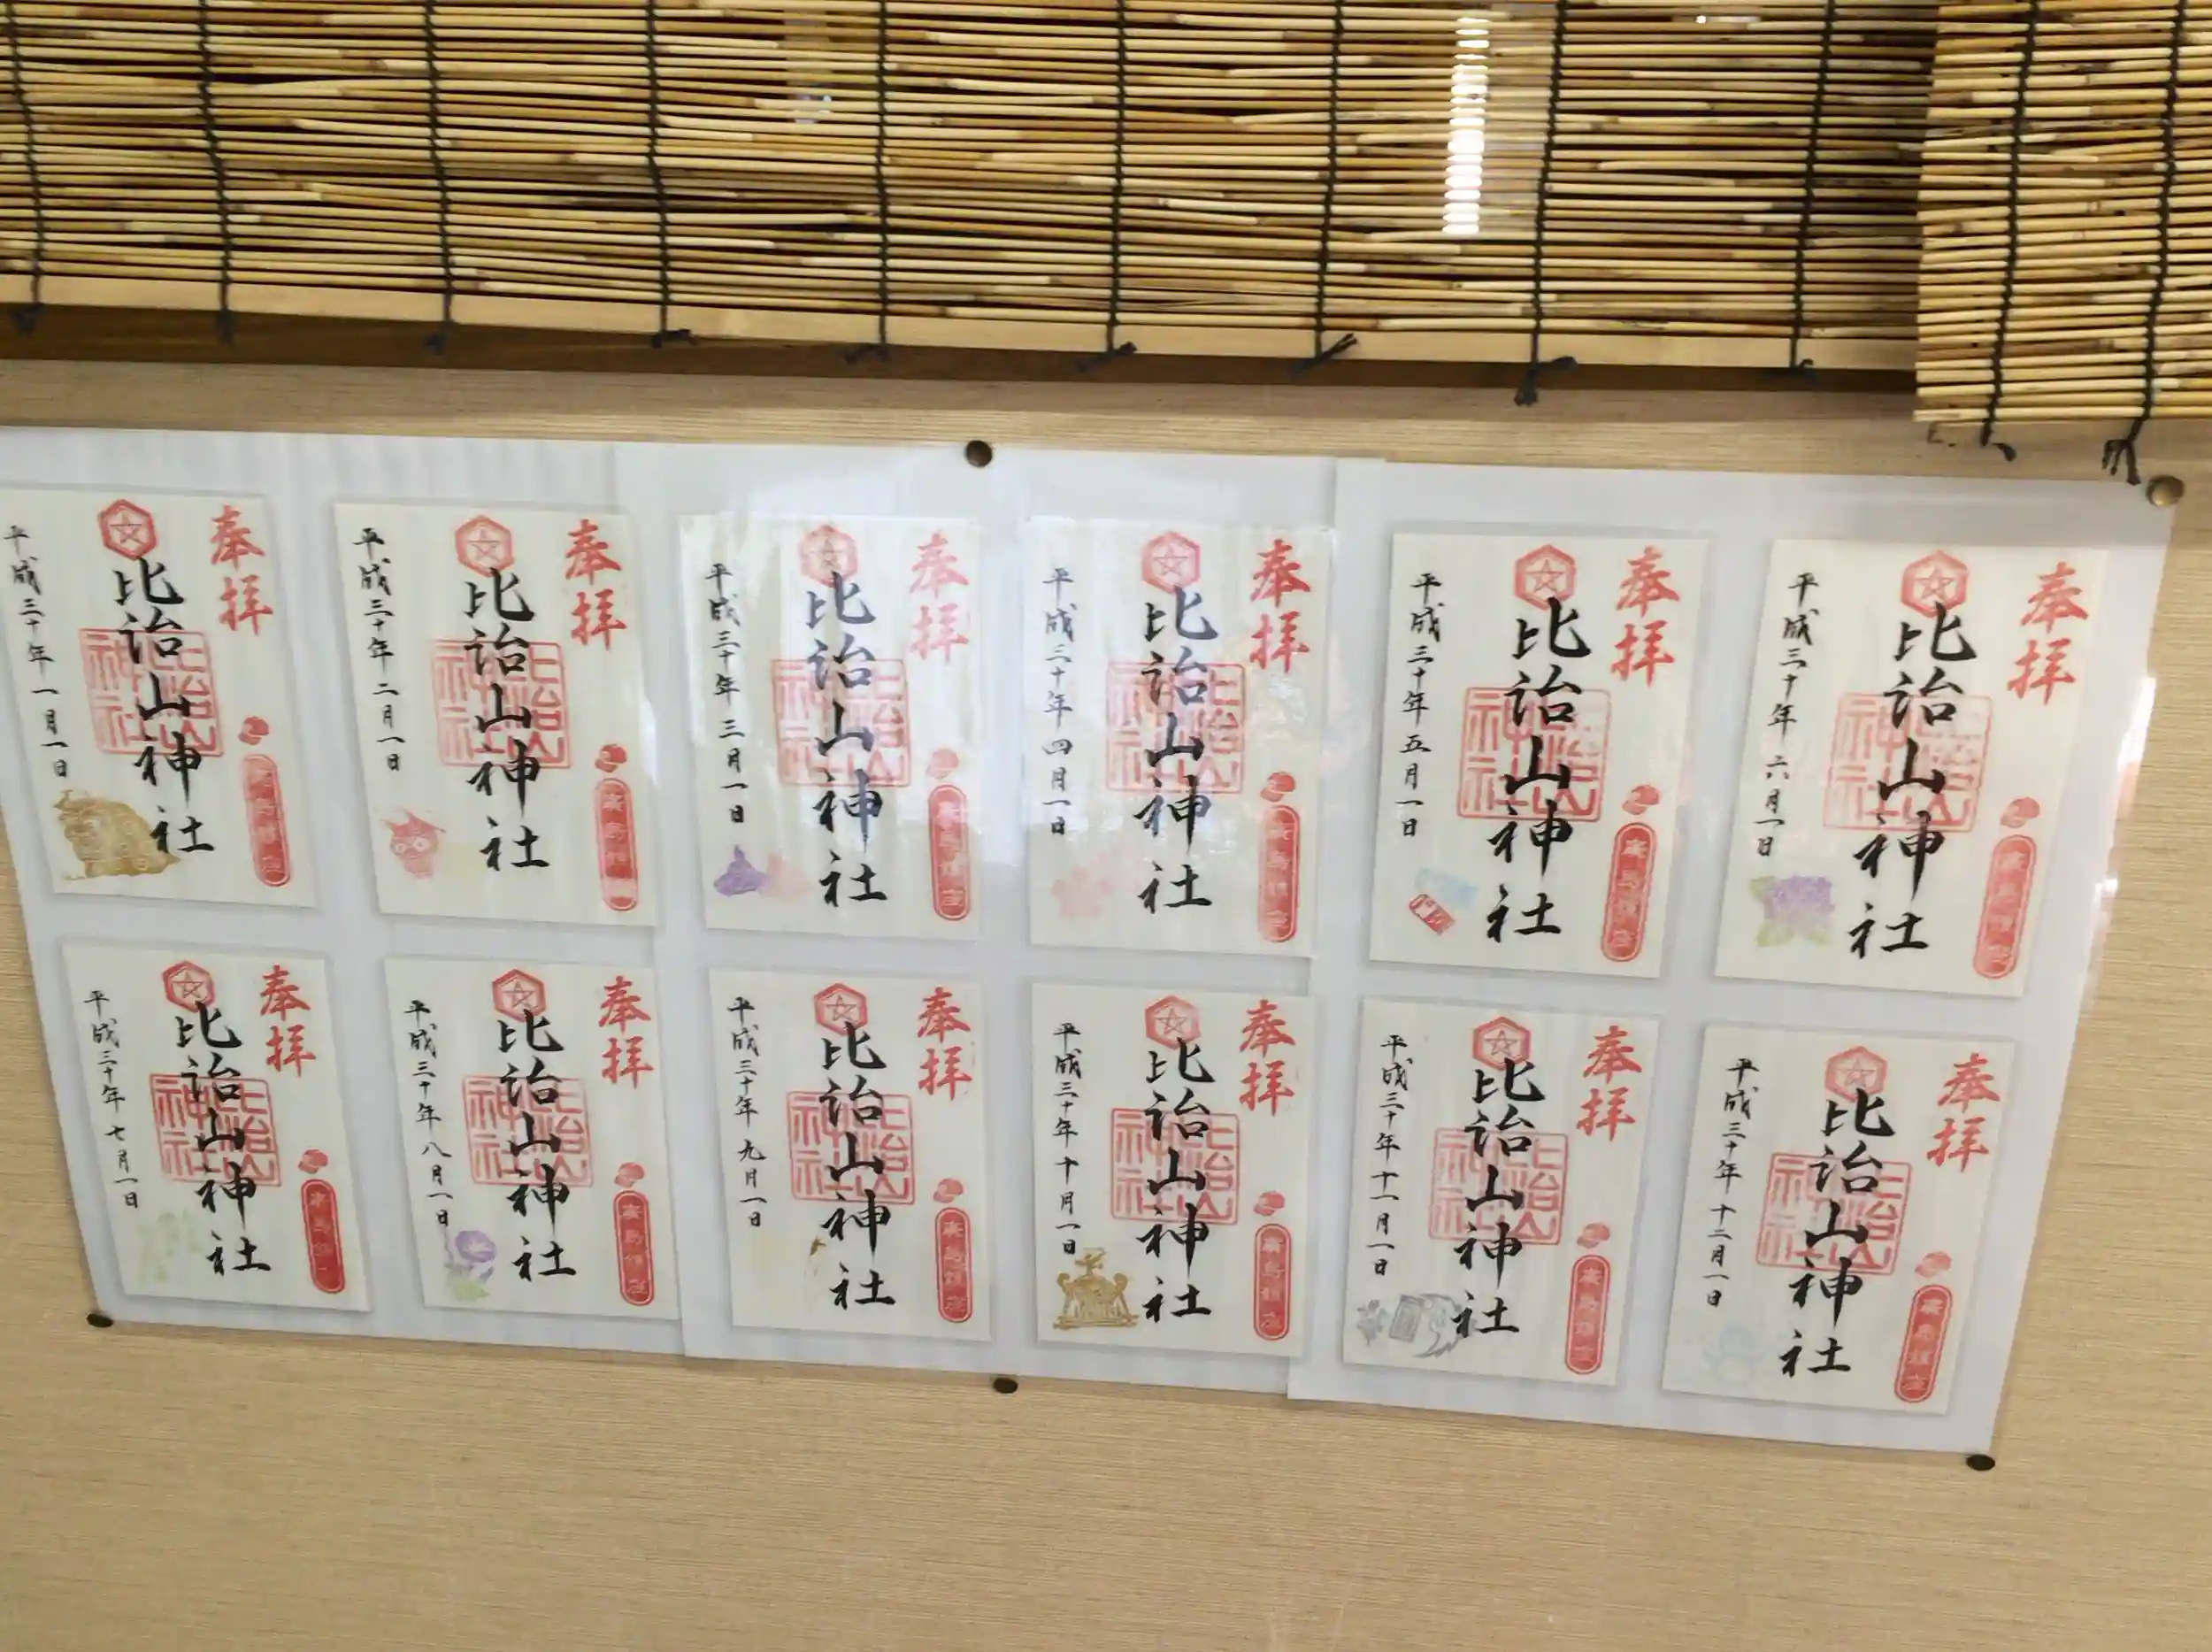 奉拝
比治山神社
平成三十年一月一日
奉拝
比治山神社
平成三十年二月一日
廣島鎮座
奉拝
比治山神社
平成三十年三月一日
廣島鎮座
奉拝
比治山神社
平成三十年四月一日
廣島鎮座
奉拝
比治山神社
平成三十年五月一日
廣島鎮座
奉拝
比治山神社
平成三十年六月一日
廣島鎮座
奉拝
比治山神社
平成三十年七月一日
奉拝
比治山神社
平成三十年八月一日
廣島鎮座
奉拝
比治山神社
平成三十年九月一日
廣島鎮座
奉拝
比治山神社
平成三十年十月一日
廣島鎮座
奉拝
比治山神社
平成三十年十一月一日
廣島鎮座
奉拝
比治山神社
平成三十年十二月一日
廣島鎮座